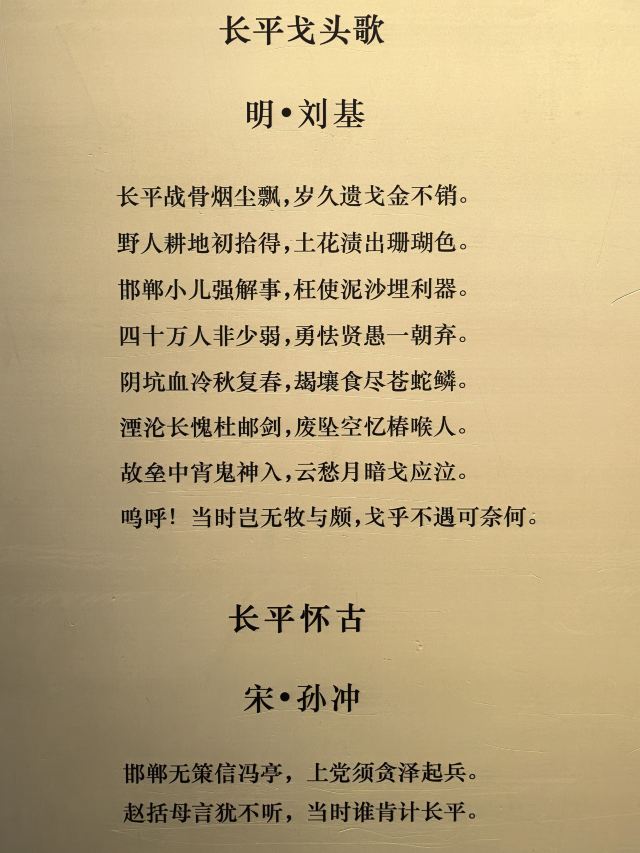 长平戈头歌
明•刘基
长平战骨烟尘飘,岁久遗戈金不销。
野人耕地初拾得,土花渍出珊瑚色。
邯郸小儿强解事,枉使泥沙埋利器。
四十万人非少弱,勇怯贤愚一朝弃。
阴坑血冷秋复春,朅壤食尽苍蛇鳞。
湮沦长愧杜邮剑,废坠空忆椿喉人。
故垒中宵鬼神入,云愁月暗戈应泣。
呜呼！当时岂无牧与颇,戈乎不遇可奈何。
长平怀古
宋•孙冲
邯郸无策信冯亭，上党须贪泽起兵。
赵括母言犹不听，当时谁肯计长平。